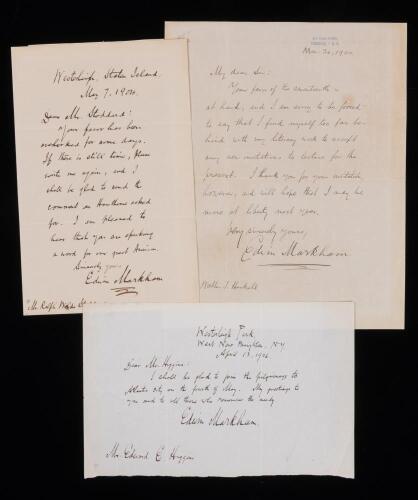 Westerleigh, Staten Island.
May 7, 1904.
Dear Mr. Stoddard:
Your favor has been
overlooked for some days.
If there is still time, please
write me again, and I
shall be glad to send the
comment on Hawthorne asked
for. I am pleased to
hear that you are speaking
a word for our great American.
Sincerely yours
Edwin Markham
Mr. Ralph
Mar. 20, 1900
My dear Sir:
Your favor of the nineteenth is
at hand, and I am sorry to be forced
to say that I find myself too far be-
hind with my literary work to accept
any new invitations to lecture for the
present. I thank you for your invitation,
however, and will hope that I may be
more at liberty next year.
Very sincerely yours,
Edwin Markham
Westerleigh Park
West New Brighton, N.Y.
April 13, 1926
Dear Mr. Higgins:
I shall be glad to join the pilgrimage to
Atlantic City on the fourth of May. My greetings to
you and to all those who
Edwin Markham.
Mr. Edward E. Higgins